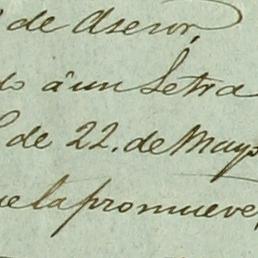 de Asesor,
do á un Letra
de 22. de Mayo
ue la promueve,